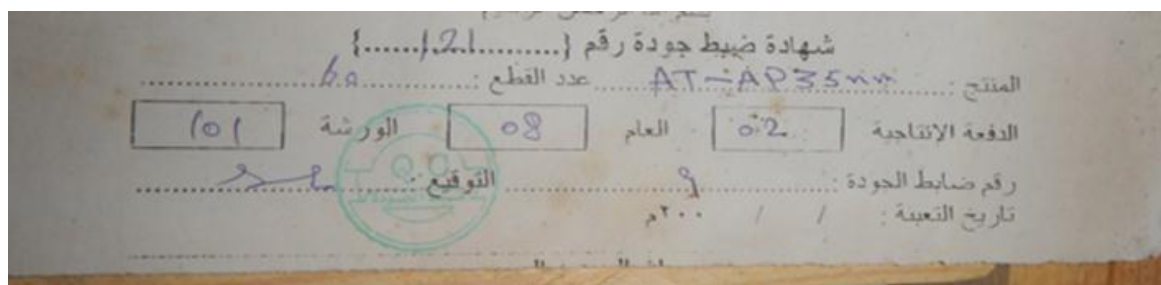 شهادة ضبط جودة رقم {.......121.......}
المنتج : AT-AP35mm عدد القطع : 60
الدفعة الإنتاجية 02 العام 08 الورشة 101
رقم ضابط الجودة : 9 التوقيع :
تاريخ التعبئة : / / ٢٠٠م